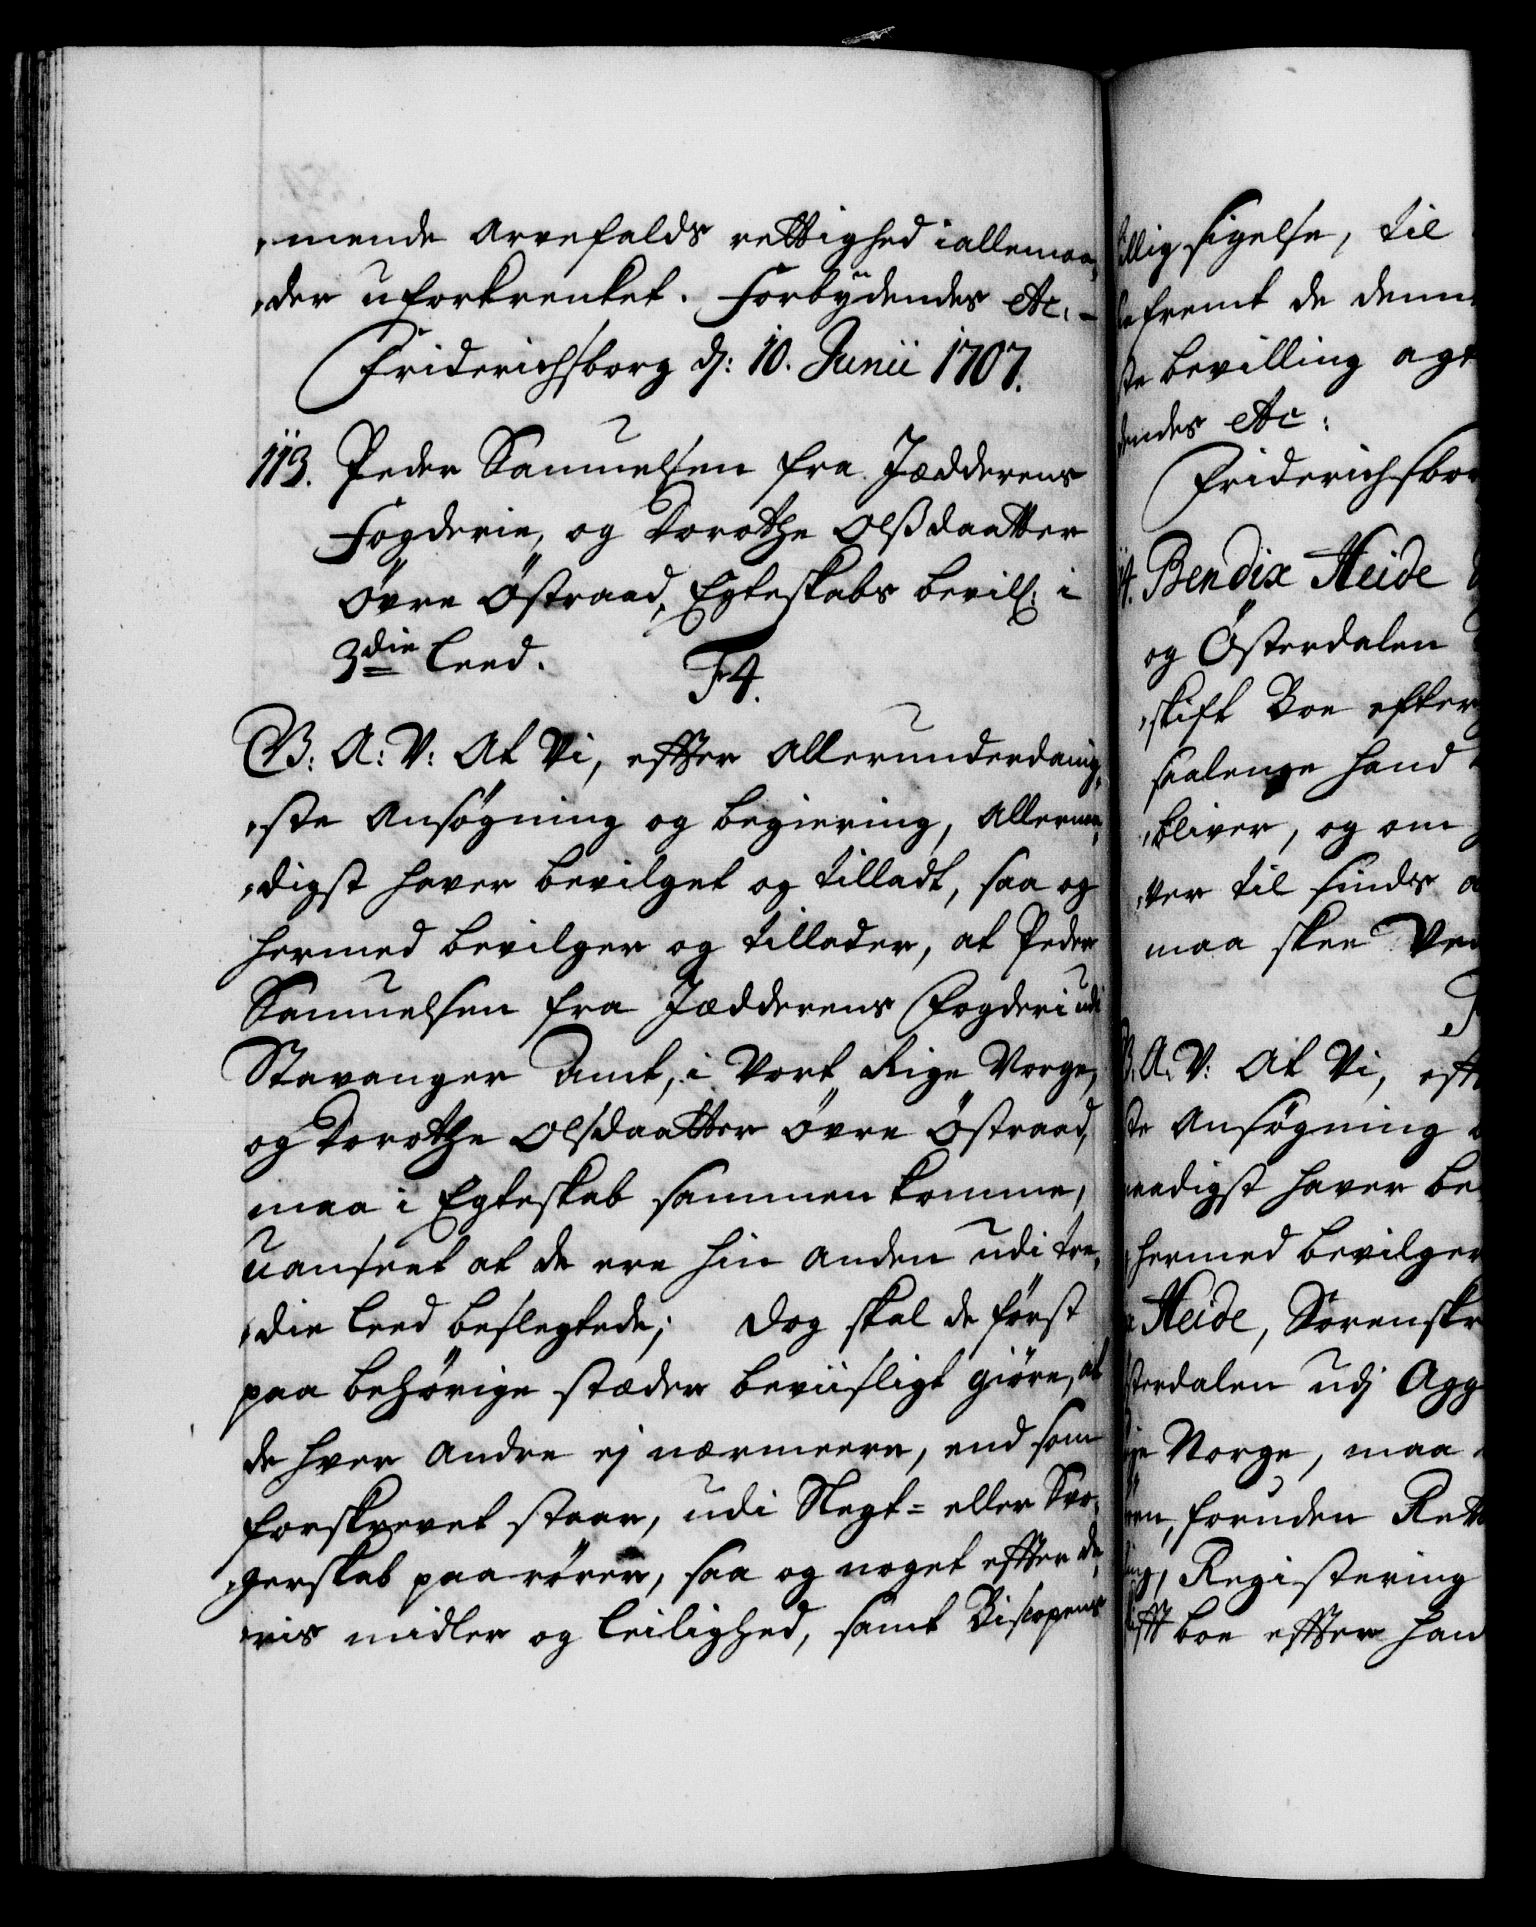 „mende arvefalds rettighed i allemaa„
„der uforkrenket. Forbydendes etc. –
Friderichsborg d: 10. Junii 1707.
113. Peder Samuelsen fra Jædderens
Fogderie, og Dorothe Olsdaatter
Øvre Østraad, Egteskabs bevill: i
3die Leed.
F4.
G: A: V: At Vi, effter allerunderdanig„
„ste Ansøgning og begiering, allernaa„
„digst haver bevilget og tilladt, saa og
hermed bevilger og tillader, at Peder
Samuelsen fra Jædderens Fogderi udi
Stavanger Amt, i Vort Rige Norge,
og Dorothe Olsdaatter Øvre Østraad,
maa i Egteskab sammen komme,
uanseet at de ere hin anden udi tre„
„die Leed beslegtede; Dog skal de først
paa behørige stæder beviisligt giøre, at
de hver andre ej nærmeere, end som
forskrevet staar, udi Slegt- eller Svo„
„gerskab paarører, saa og noget effter de„
„ris midler og leilighed, samt Biscopens
llig sigelse, til
fremt de denne
ste bevilling agt
dendes etc:
Friderichsbor
4. Bendix Heide
og Østerdalen
„skift Boe efter
saalenge hand
„bliver, og om
„ver til sinds a
maa skee Ve
B. A: V: At Vi, efft
ste Ansøgning o
naadigst haver be
hermed bevilger
Heide, Sorenskr
sterdalen udj Agg
je Norge, maa
ren, foruden Rett
ing, Registering
ifft boe effter han